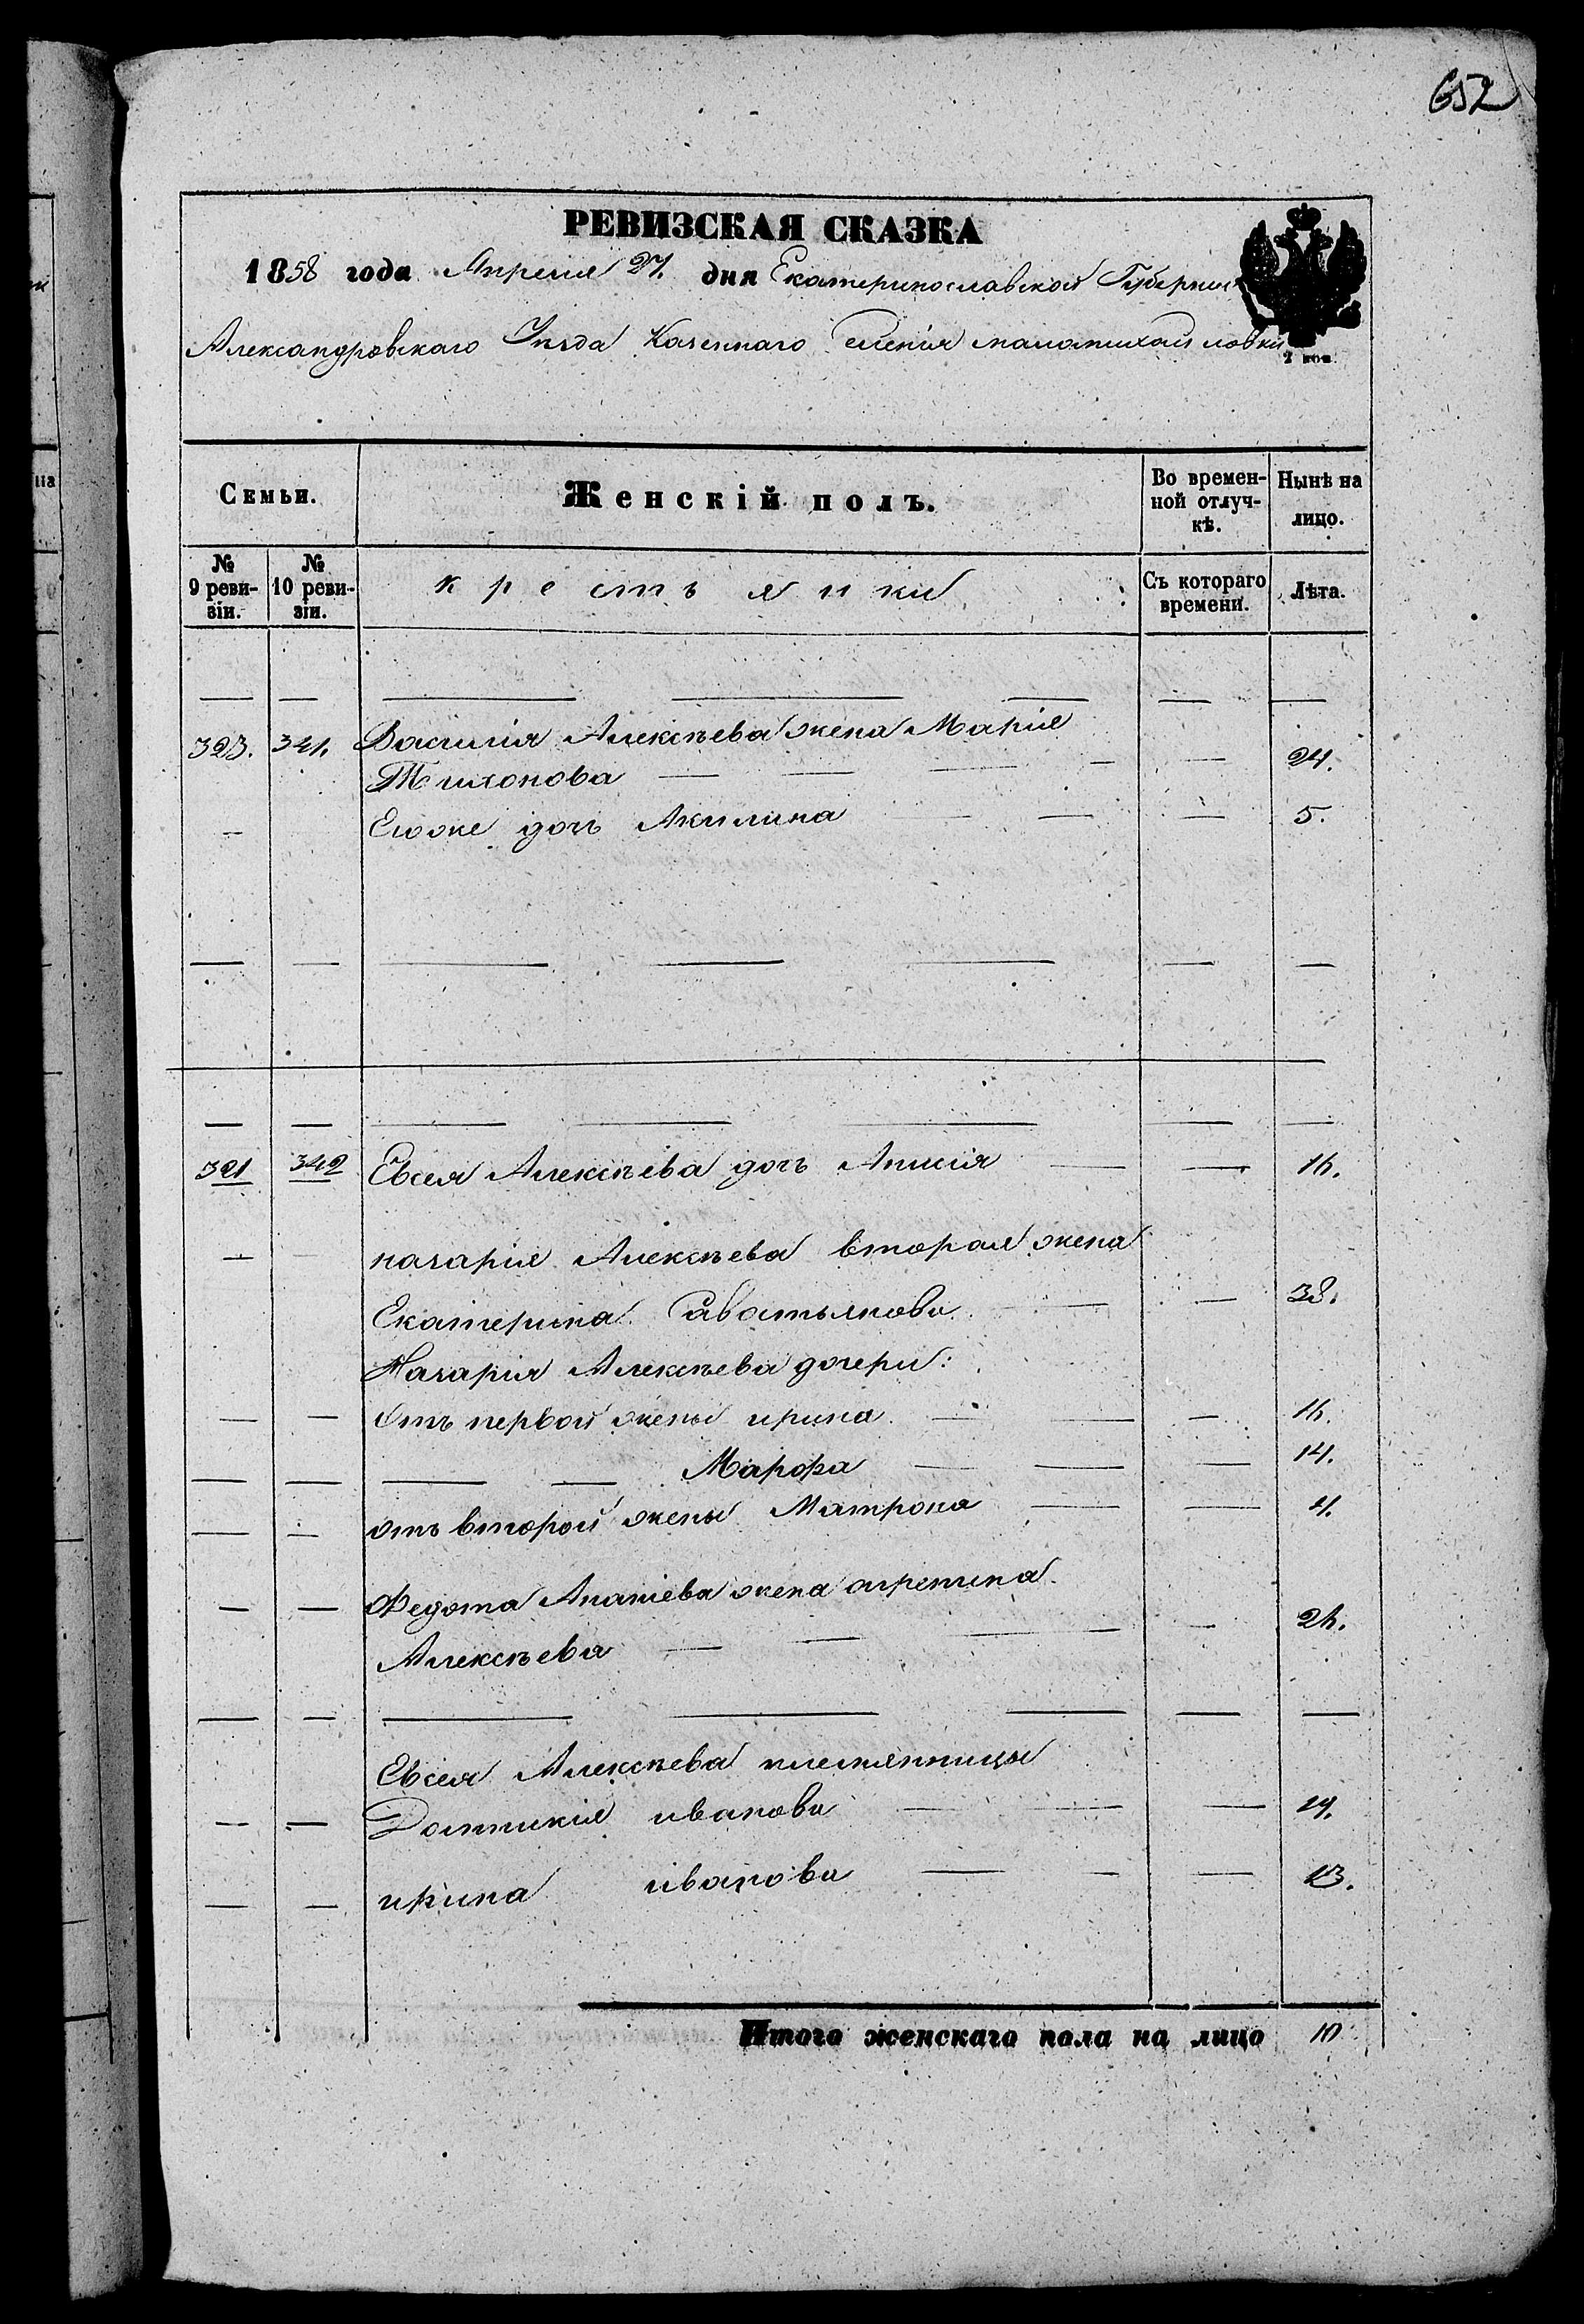 652
РЕВИЗСКАЯ СКАЗКА
1858 года Апреля 27. дня Екатеринославской Губернии
Александровскаго Уезда Казеннаго Селенія маломихайловки
2 коп.
Семьи.
Женскій полъ.
Во времен-
ной отлуч-
кѣ.
Нынѣ на
лицо.
№
9 реви-
зіи.
№
10 реви-
зіи.
крестьянки
Съ котораго
времени.
Лѣта.
323. 341. Василія Алексѣева жена Марія
Тихонова 24.
Егоже дочь Акилина 5.
321 342 Евсея Алексѣева дочь Анисія 16.
назарія Алексѣева вторая жена
Екатерина Савостьянова 38.
Назарія Алексѣева дочери:
Отъ первой жены ирина 16.
Марфа 14.
отъ второй жены Матрона 4.
Федота Ананіева жена агрепина
Алексѣева 26.
Евсея Алексѣева племянницы
Домникія иванова 19.
ирина иванова 13.
Итого женскаго пола на лицо 10